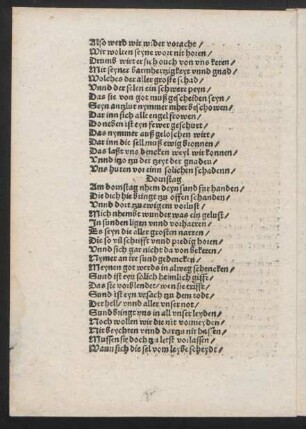 Also werd wir wider vorache/
Wir wolten seyne wort nit horen/
Drumb wirt er sich ouch von vns keren/
Mit seyner barmhertzigkeyt vnnd gnad/
Wolches der aller groste schad/
Vnnd der selen ein schwere peyn/
Das sie von got muß gescheiden seyn/
Seyn anglut nymmer mher beschowen/
Dar inn sich alle engel frowen/
Do neben ist eyn fewer geschurt/
Das nymmer auß geloschen wirt/
Dar inn die sell muß ewig bronnen/
Das last vns dencken weyl wir konnen/
Vnnd itzo zu der zeyt der gnaden/
Vns huten vor einn solichen schadenn/
Dornstag
Am dornstag nhem deyn sund fur handen/
Die dich hie bringt zu offen schanden/
Vnnd dort zu ewigem vorlust/
Mich nhembt wunder was ein gelust/
In sunden ligen vnnd vorharren/
Es seyn die aller grosten narren/
Die so vil schrifft vnnd predig horen/
Vnnd sich gar nicht da von bekeren/
Nymer an ire sund gedencken/
Meynen got werds in alweg schencken/
Sund ist eyn solich heimlich gifft/
Das sie vorblendet/wen sie trifft/
Sund ist eyn vrsach zu dem todt/
Der hell/vnnd aller vnser not/
Sund bringt vns in all vnser leyden/
Noch wollen wir die nit vormeyden/
Nit beychten vnnd dartzu nit hassen/
Mussen sie doch zu letst vorlassen/
Wann sich die sel vom leybe scheydt/